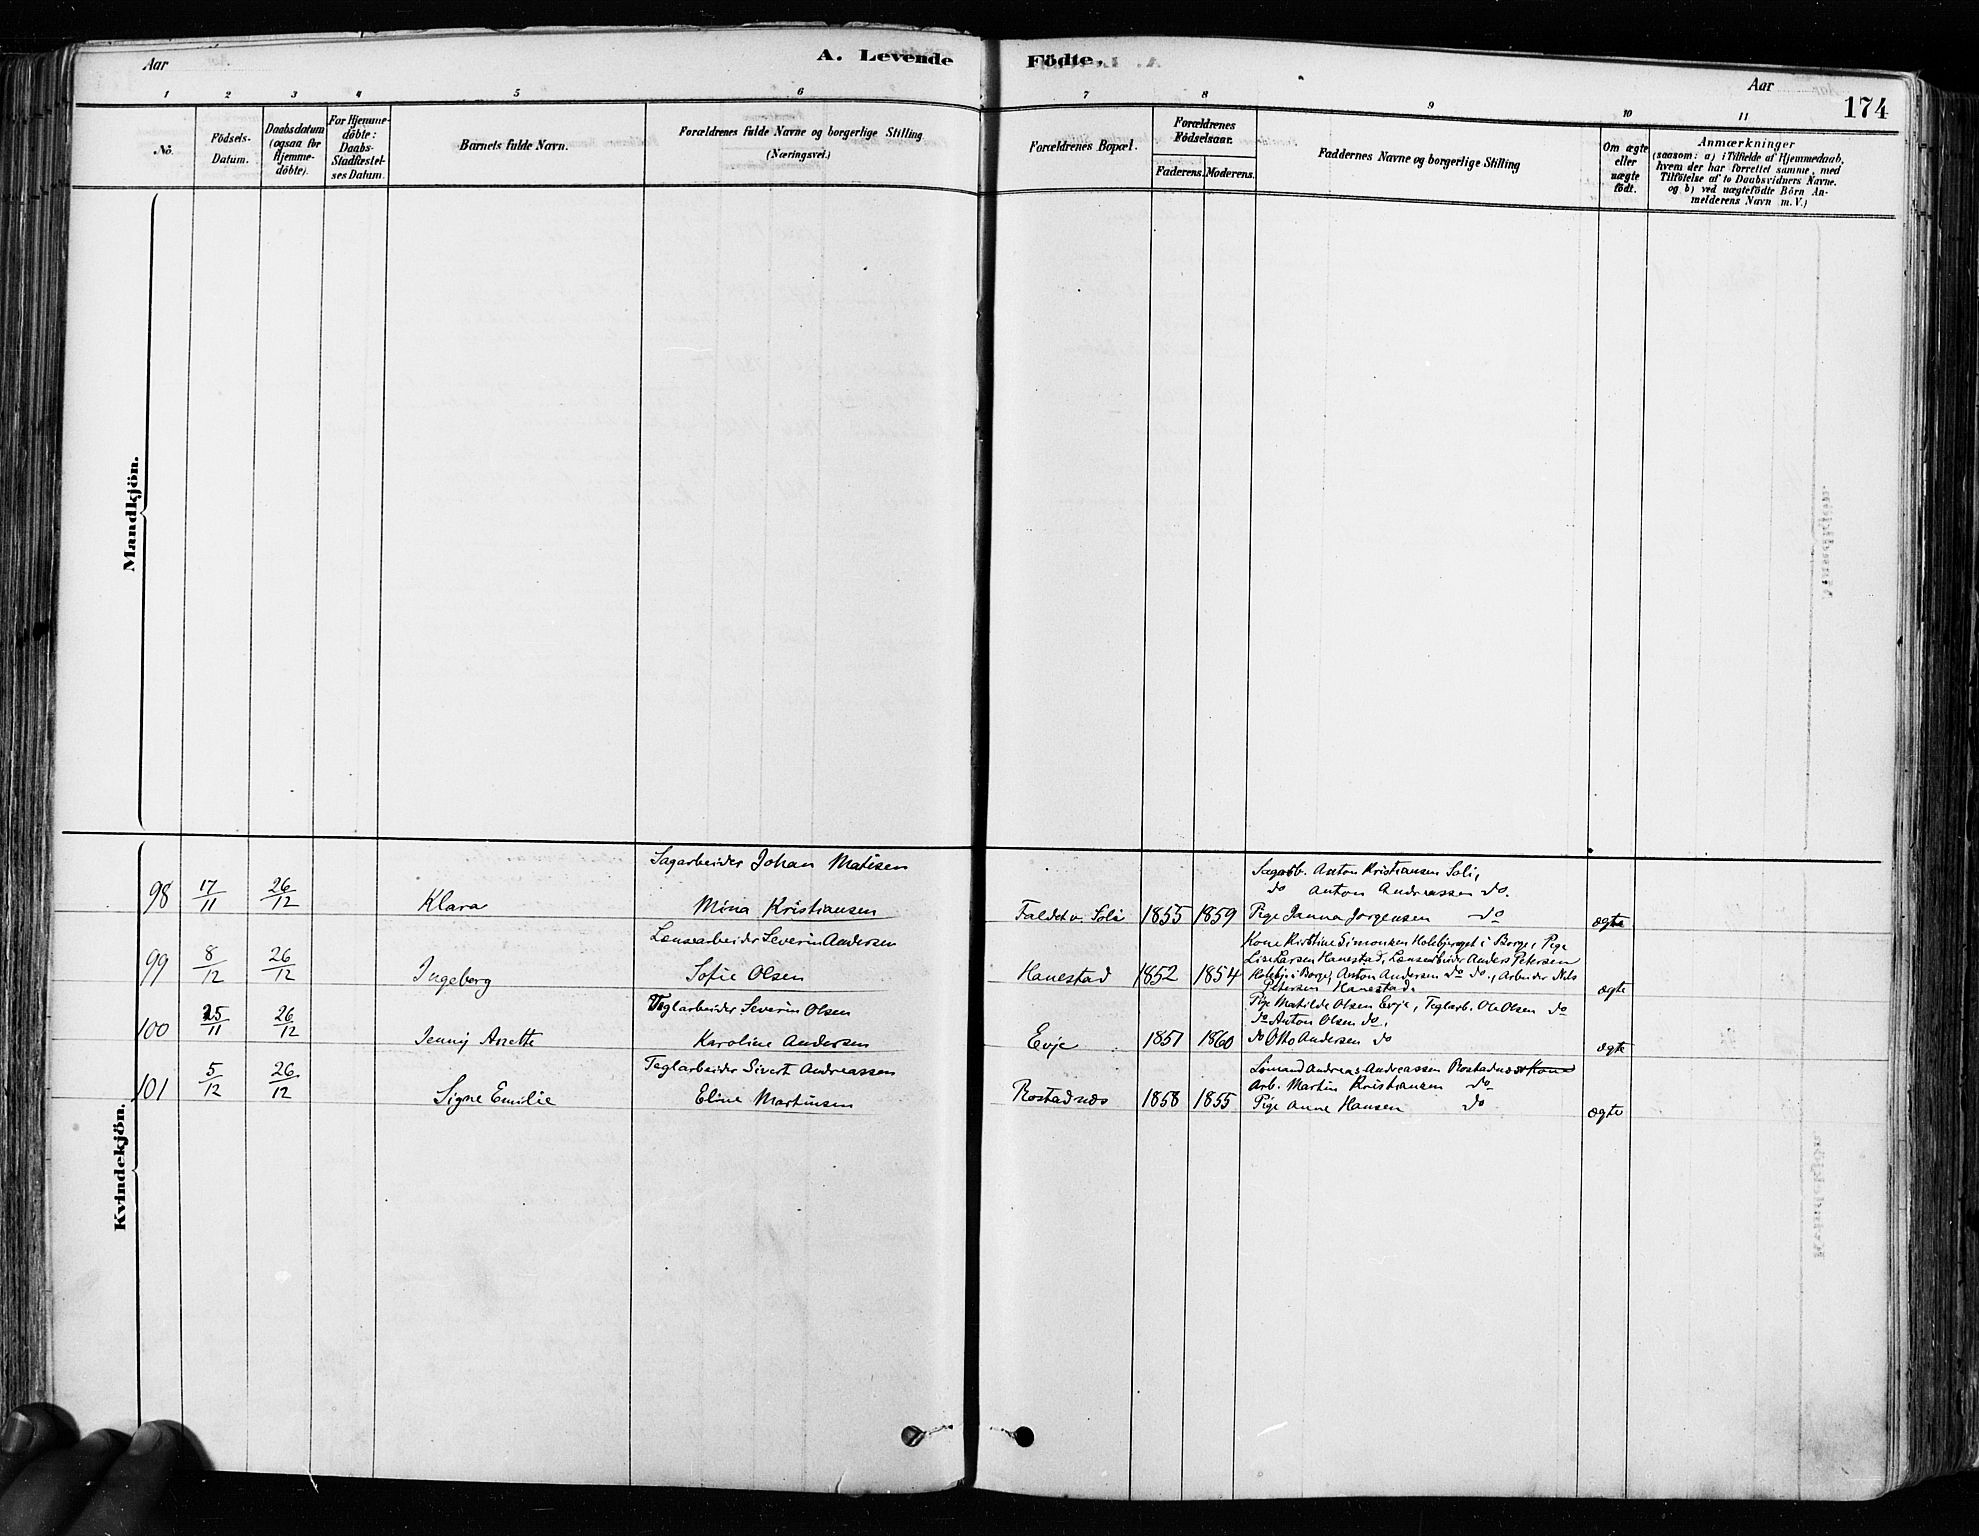 Aar
A. Levende
Födte.
Aar
174
1 2 3 4 5 6 7 8 9 10 11
No.
Födsels-
Datum.
Daabsdatum
(ogsaa for
Hjemme-
döbte).
For Hjemme-
döbte:
Daabs-
Stadfæstel-
ses Datum.
Barnets fulde Navn.
Forældrenes fulde Navne og borgerlige Stilling
(Næringsvei.)
Forældrenes Bopæl.
Forældrenes
Födselsaar.
Faderens. Moderens.
Faddernes Navne og borgerlige Stilling
Om ægte
eller
uægte
födt.
Anmærkninger
(saasom: a) i Tilfælde af Hjemmedaab,
hvem der har forrettet samme, med
Tilföielse af to Daabsvidners Navne.
og b) ved uægtefödte Börn An-
melderens Navn m. V.)
Mandkjön.
Kvindekjön.
98 17/11 26/12 Klara
Sagarbeider Johan Matisen
Mina Kristiansen
Faldet v. Soli 1855 1859
Sagarb. Anton Kristiansen Soli,
do Anton Andreassen do.
Pige Janna Jørgensen do
ægte
99 8/12 26/12 Ingeborg
Lensearbeider Severin Andersen
Sofie Olsen
Hanestad 1852 1854
Kone Kirstine Simonsen Holebjerget i Borge, Pige
Lise Larsen Hanestad, Lensearbeider Anders Petersen
Holebj. i Borge, Anton Andersen do do., Arbeider Nils
Petersen Hanestad.
ægte
100 25/11 26/12 Jenny Anette
Teglarbeider Severin Olsen
Karoline Andersen
Evje 1857 1860
Pige Matilde Olsen Evje, Teglarb. Ole Olsen do
do Anton Olsen do,
do Otto Andersen do
ægte
101 5/12 26/12 Signe Emilie
Teglarbeider Sivert Andreassen
Eline Martinsen
Rostadnæs 1858 1855
Sømand Andreas Andreassen Rostadnæs Kone
Arb. Martin Kristiansen do
Pige Anne Hansen do
ægte